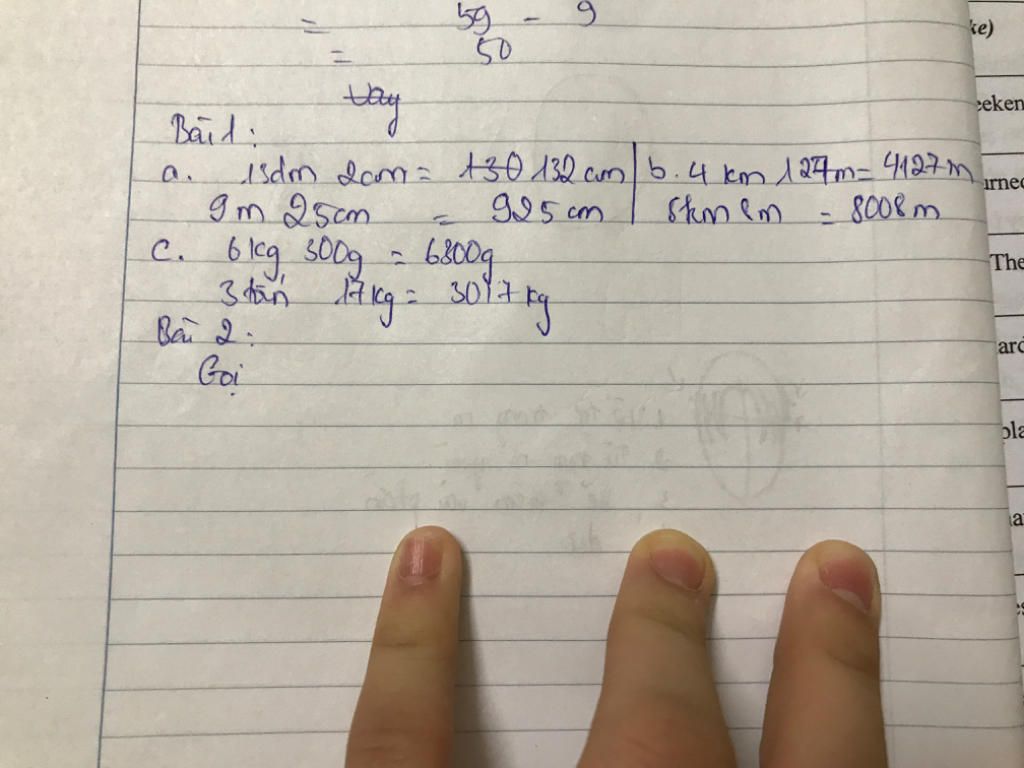 = 59 - 9
= 50
tay
Bài 1:
a. 13dm 2cm = 130 132 cm | b. 4 km 127m = 4127 m
9m 25cm = 925 cm | 8km 8m = 8008 m
c. 6kg 300g = 6300g
3 tấn 17kg = 3017 kg
Bài 2:
Gọi
ke)
eeken
urned
The
ard
pla